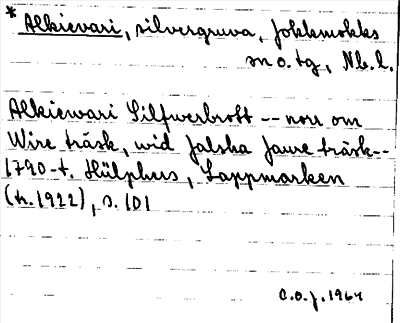 * Alkievari, silvergruva, Jokkmokks
sn o. tg, Nb. l.
Alkiewari Silfwerbrott -- norr om
Wire träsk, wid Jalsha Jaure träsk--
1790-t. Hülphers, Lappmarken
(tr. 1922), s. 101
C.O.J. 1964